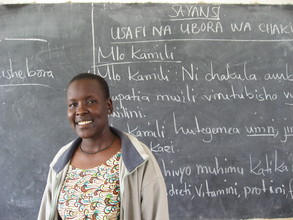 SAYANSI
USAFI NA UBORA WA CHAKU
Mlo kamili
Mlo kamili: Ni chakula amb
upatia mwili virutubisho v
wilini.
kamili hutegemea umri, jin
kazi.
hivyo muhimu katika
Vitamini, protini, f
ishe bora